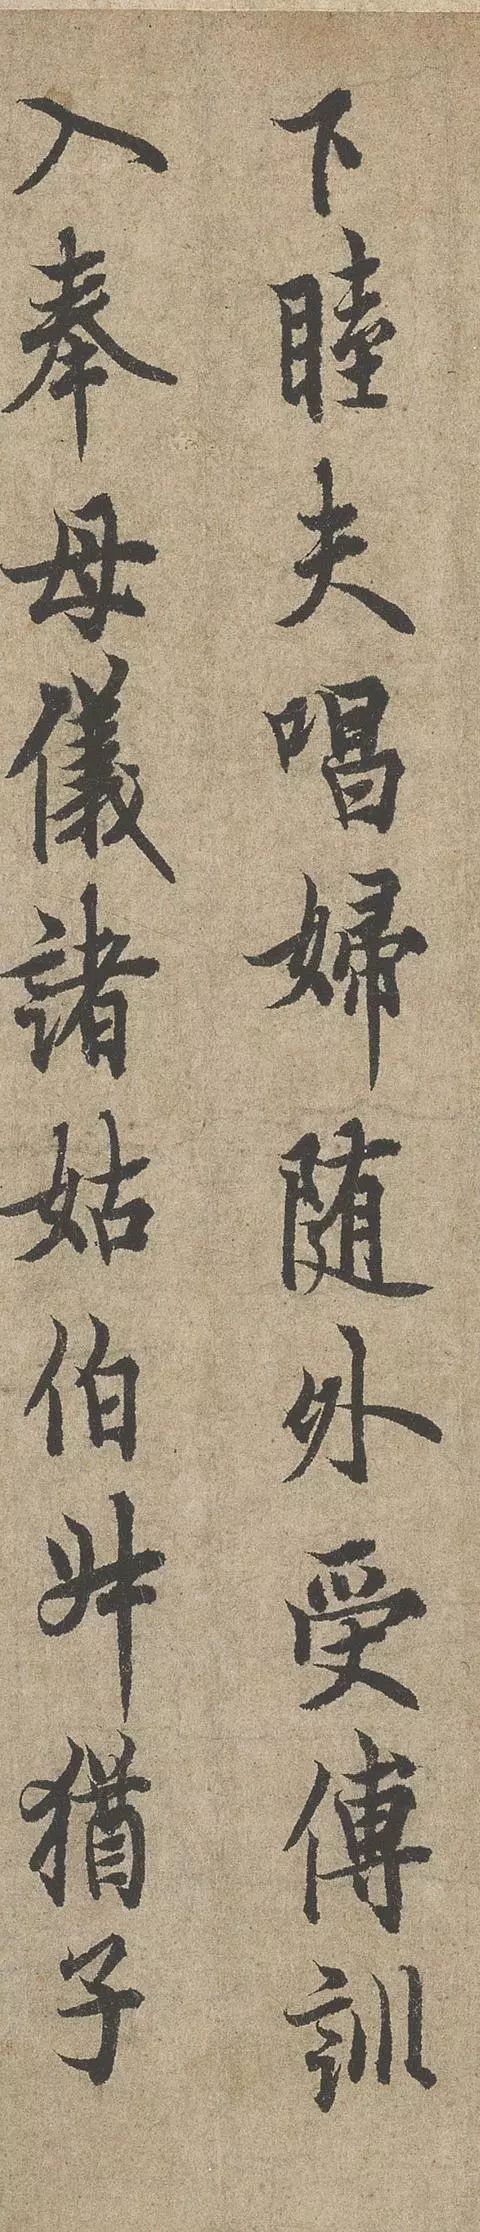 下睦夫唱婦随外受傅訓
入奉母儀諸姑伯叔猶子